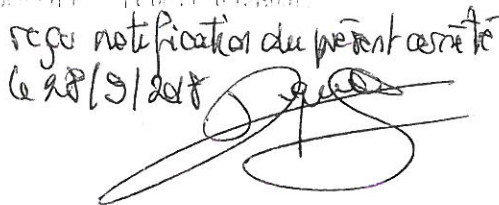 reçu notification du présent arrêté
le 28/9/2018